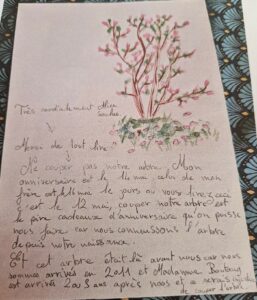 Très cordialement Mlle
Merci de tout lire !
Ne couper pas notre arbre. Mon
anniversaire est le 14 mai, celui de mon
frère est
le jours ou vous lirez ceci
c'est le 12 mai, couper notre arbre est
le pire cadeaux d'anniversaire qu'on puisse
nous faire car nous connaissons l'arbre
depuis notre naissance.
Et cet arbre était là avant vous car nous
sommes arrivés en 2011 et Madame
est arrivé 2 ou 3 ans après nous et
de couper l'arbre